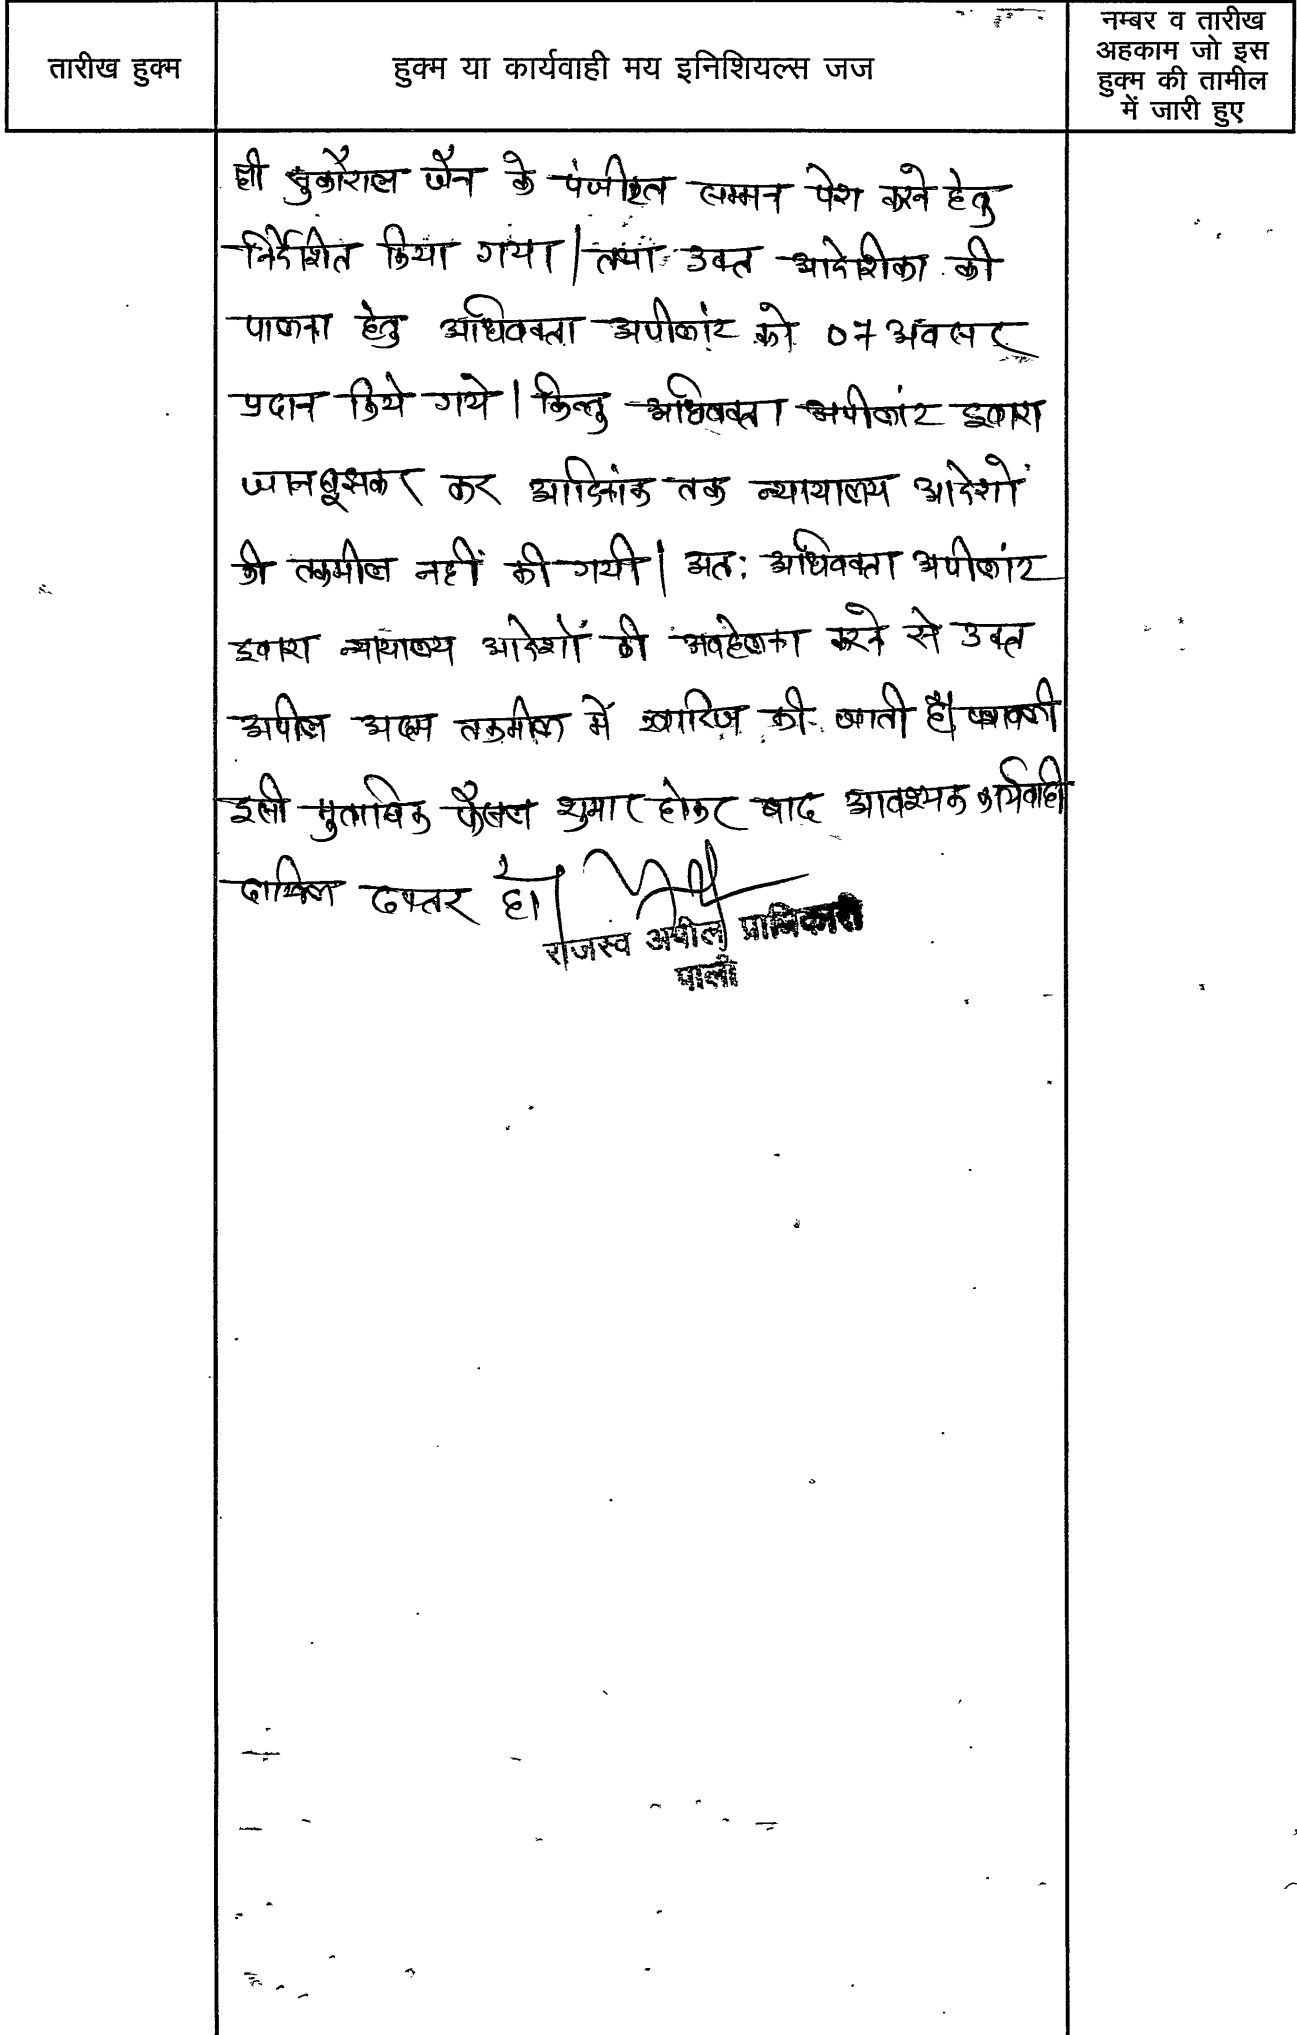 तारीख हुक्म
हुक्म या कार्यवाही मय इनिशियल्स जज
नम्बर व तारीख
अहकाम जो इस
हुक्म की तामील
में जारी हुए
श्री जैन के पंजीकृत सम्मन पेश करने हेतु
निर्देशित किया गया। तथा उक्त आदेशिका की
पालना हेतु अधिवक्ता अपीलांट को 07 अवसर
प्रदान किये गये। किन्तु अधिवक्ता अपीलांट द्वारा
जानबूझकर कर आदिनांक तक न्यायालय आदेशों
की तकमील नहीं की गयी। अतः अधिवक्ता अपीलांट
द्वारा न्यायालय आदेशों की अवहेलना करने से उक्त
अपील अदम तकमील में खारिज की जाती है। पत्रावली
इसी मुताबिक फैसल शुमार होकर बाद आवश्यक कार्यवाही
दाखिल दफ्तर हो।
राजस्व अपील प्राधिकारी
पाली